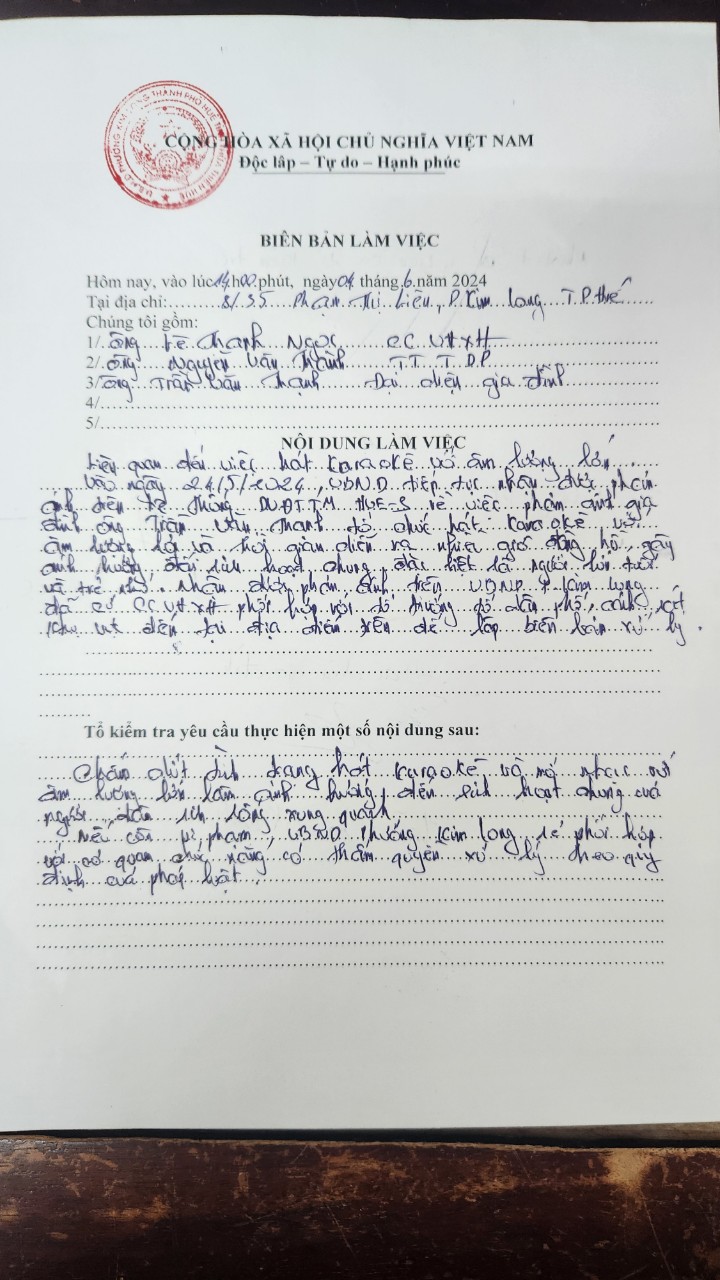 CỘNG HÒA XÃ HỘI CHỦ NGHĨA VIỆT NAM
Độc lập – Tự do – Hạnh phúc
BIÊN BẢN LÀM VIỆC
Hôm nay, vào lúc 14h00 phút, ngày 04 tháng 6 năm 2024
Tại địa chỉ: 8/35 Phạm Thị Liên, P. Kim Long T.P Huế
Chúng tôi gồm:
1/. ông Lê Thanh Ngọc CC VHXH
2/. ông Nguyễn Văn Thành TT TDP
3/ ông Trần Văn Thạnh Đại diện gia đình
4/
5/
NỘI DUNG LÀM VIỆC
Liên quan đến việc hát karaoke với âm lượng lớn
Vào ngày 24/5/2024, UBND tiếp tục nhận được phản
ánh trên hệ thống ĐVĐTTM HUE-S về việc phản ánh gia
đình ông Trần Văn Thanh tổ chức hát karaoke với
âm lượng lớn và thời gian diễn ra nhiều giờ đồng hồ, gây
ảnh hưởng đến sinh hoạt chung, đặc biệt là người lớn tuổi
và trẻ nhỏ. Nhận được phản ánh trên UBND P Kim Long
đã cử CC VHXH phối hợp với tổ trưởng tổ dân phố, cảnh sát
khu vực đến tại địa điểm trên để lập biên bản xử lý.
Tổ kiểm tra yêu cầu thực hiện một số nội dung sau:
Chấm dứt tình trạng hát karaoke và mở nhạc với
âm lượng lớn làm ảnh hưởng đến sinh hoạt chung của
người dân sinh sống xung quanh
Nếu còn vi phạm, UBND Phường Kim Long sẽ phối hợp
với cơ quan chức năng có thẩm quyền xử lý theo quy
định của pháp luật.